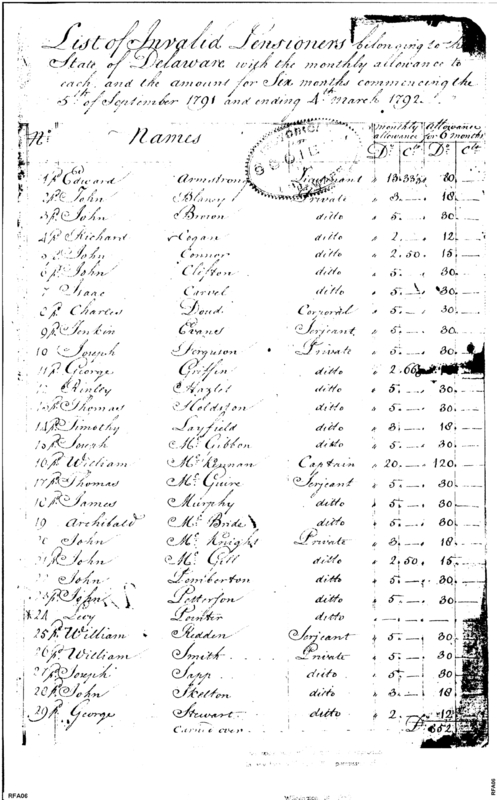 List of Invalid Pensioners belonging to the
State of Delaware with the monthly allowance to
each, and the amount for Six months commencing the
5th of September 1791 and ending 4th March 1792.
No. Names monthly allowance Allowance for 6 months
Ds. Cts. Ds. Cts.
1 pd Edward Armstrong Lieutenant " 13.33⅓ " 80
2 pd John Blaney Private " 3. — " 18
3 pd John Brown ditto " 5. — " 30
4 pd Richard Cogan ditto " 2. — " 12
5 pd John Connor ditto " 2.50 " 15
6 pd John Clifton ditto " 5. — " 30
7 Isaac Carvel ditto " 5. — " 30
8 pd Charles Doud Corporal " 5. — " 30
9 pd Jenkin Evans Serjeant " 5. — " 30
10 Joseph Ferguson Private " 5. — " 30
11 pd George Griffin ditto " 2.66
12 Kinley Hazlet ditto " 5. — " 30
13 pd Thomas Holdston ditto " 5. — " 30
14 pd Timothy Layfield ditto " 3. — " 18
15 pd Joseph Mc. Gibbon ditto " 5. — " 30
16 pd William Mc. Kennan Captain " 20. — " 120
17 pd Thomas Mc. Guire Serjeant " 5. — " 30
18 pd James Murphy ditto " 5. — " 30
19 Archibald Mc. Bride ditto " 5. — " 30
20 John Mc. Knight Private " 3. — " 18
21 pd John Mc. Gill ditto " 2.50 " 15
22 John Pemberton ditto " 5. — " 30
23 pd John Patterson ditto " 5. — " 30
24 Levy Pointer ditto " . — "
25 pd William Redden Serjeant " 5. — " 30
26 pd William Smith Private " 5. — " 30
27 pd Joseph Sapp ditto " 5. — " 30
28 pd John Skelton ditto " 3. — " 18
29 pd George Stewart ditto " 2. — " 12
Carried over Ds. 852
RFA06
RFA06